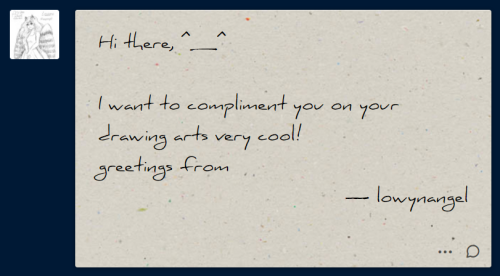 Hi there, ^__^
I want to compliment you on your
drawing arts very cool!
greetings from
— lowynangel